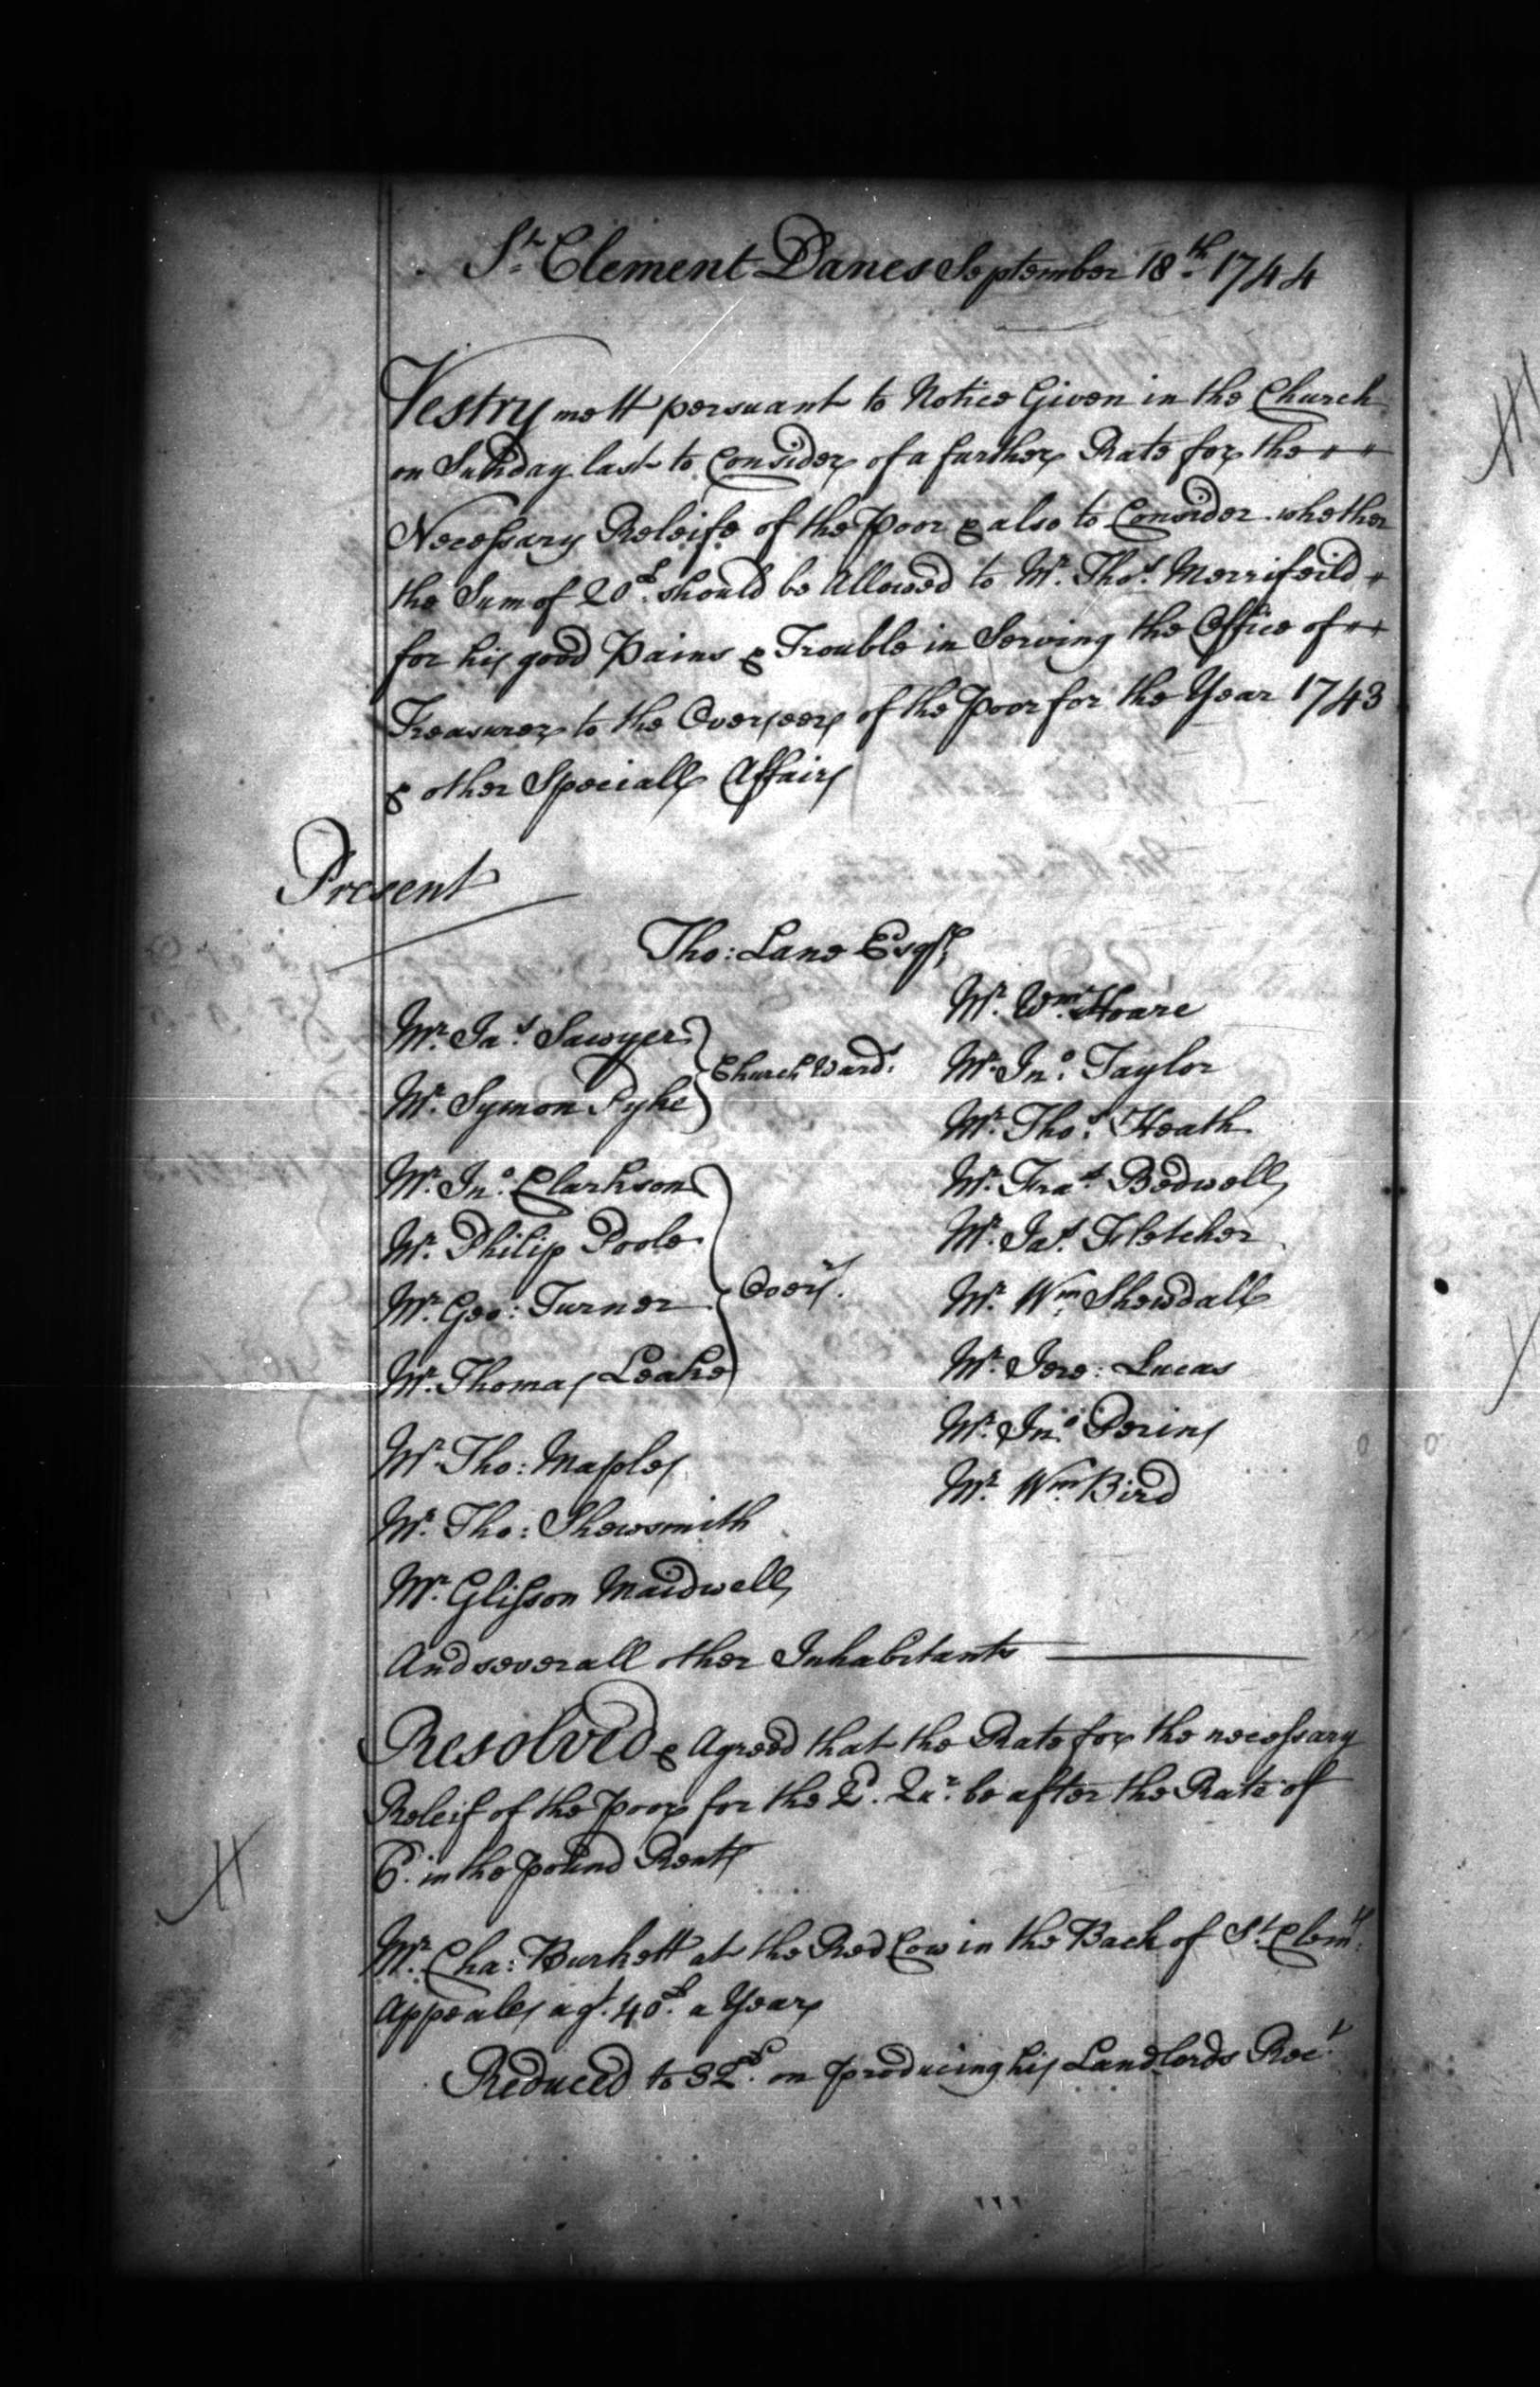 St. Clement Danes September 18th. 1744
Vestry mett persuant to Notice Given in the Church
on Sunday last to Consider of a further Rate for the
Necessary Releife of the Poor & also to Consider whether
the Sum of 20£. should be Allowed to Mr. Thos. Merrifeild
for his good Pains & Trouble in Serving the Office of
Treasurer to the Overseers of the Poor for the Year 1743
& other Speciall Affairs
Present
Tho: Lane Esqr.
Mr. Jas. Sawyer
Mr. Symon Pyke
Church Wards.
Mr. Jno. Clarkson
Mr. Philip Poole
Mr. Geo: Turner
Mr. Thomas Leake
Overs.
Mr. Tho: Maples
Mr. Tho: Shewsmith
Mr. Glisson Maidwell
Mr. Wm. Hoare
Mr. Jno. Taylor
Mr. Thos. Heath
Mr. Fras. Bedwell
Mr. Jas. Fletcher
Mr. Wm. Shewdall
Mr. Jere: Lucas
Mr. Jno. Perins
Mr. Wm. Bird
And severall other Inhabitants
Resolved & Agreed that the Rate for the necessary
Releif of the Poor for the 2d. Qur. be after the Rate of
6d. in the pound Rent
Mr. Cha: Burkett at the Red Cow in the Back of St. Clemts.
Appeales agt. 40£. a Year
Reduced to 32£. on producing his Landlords Rect.